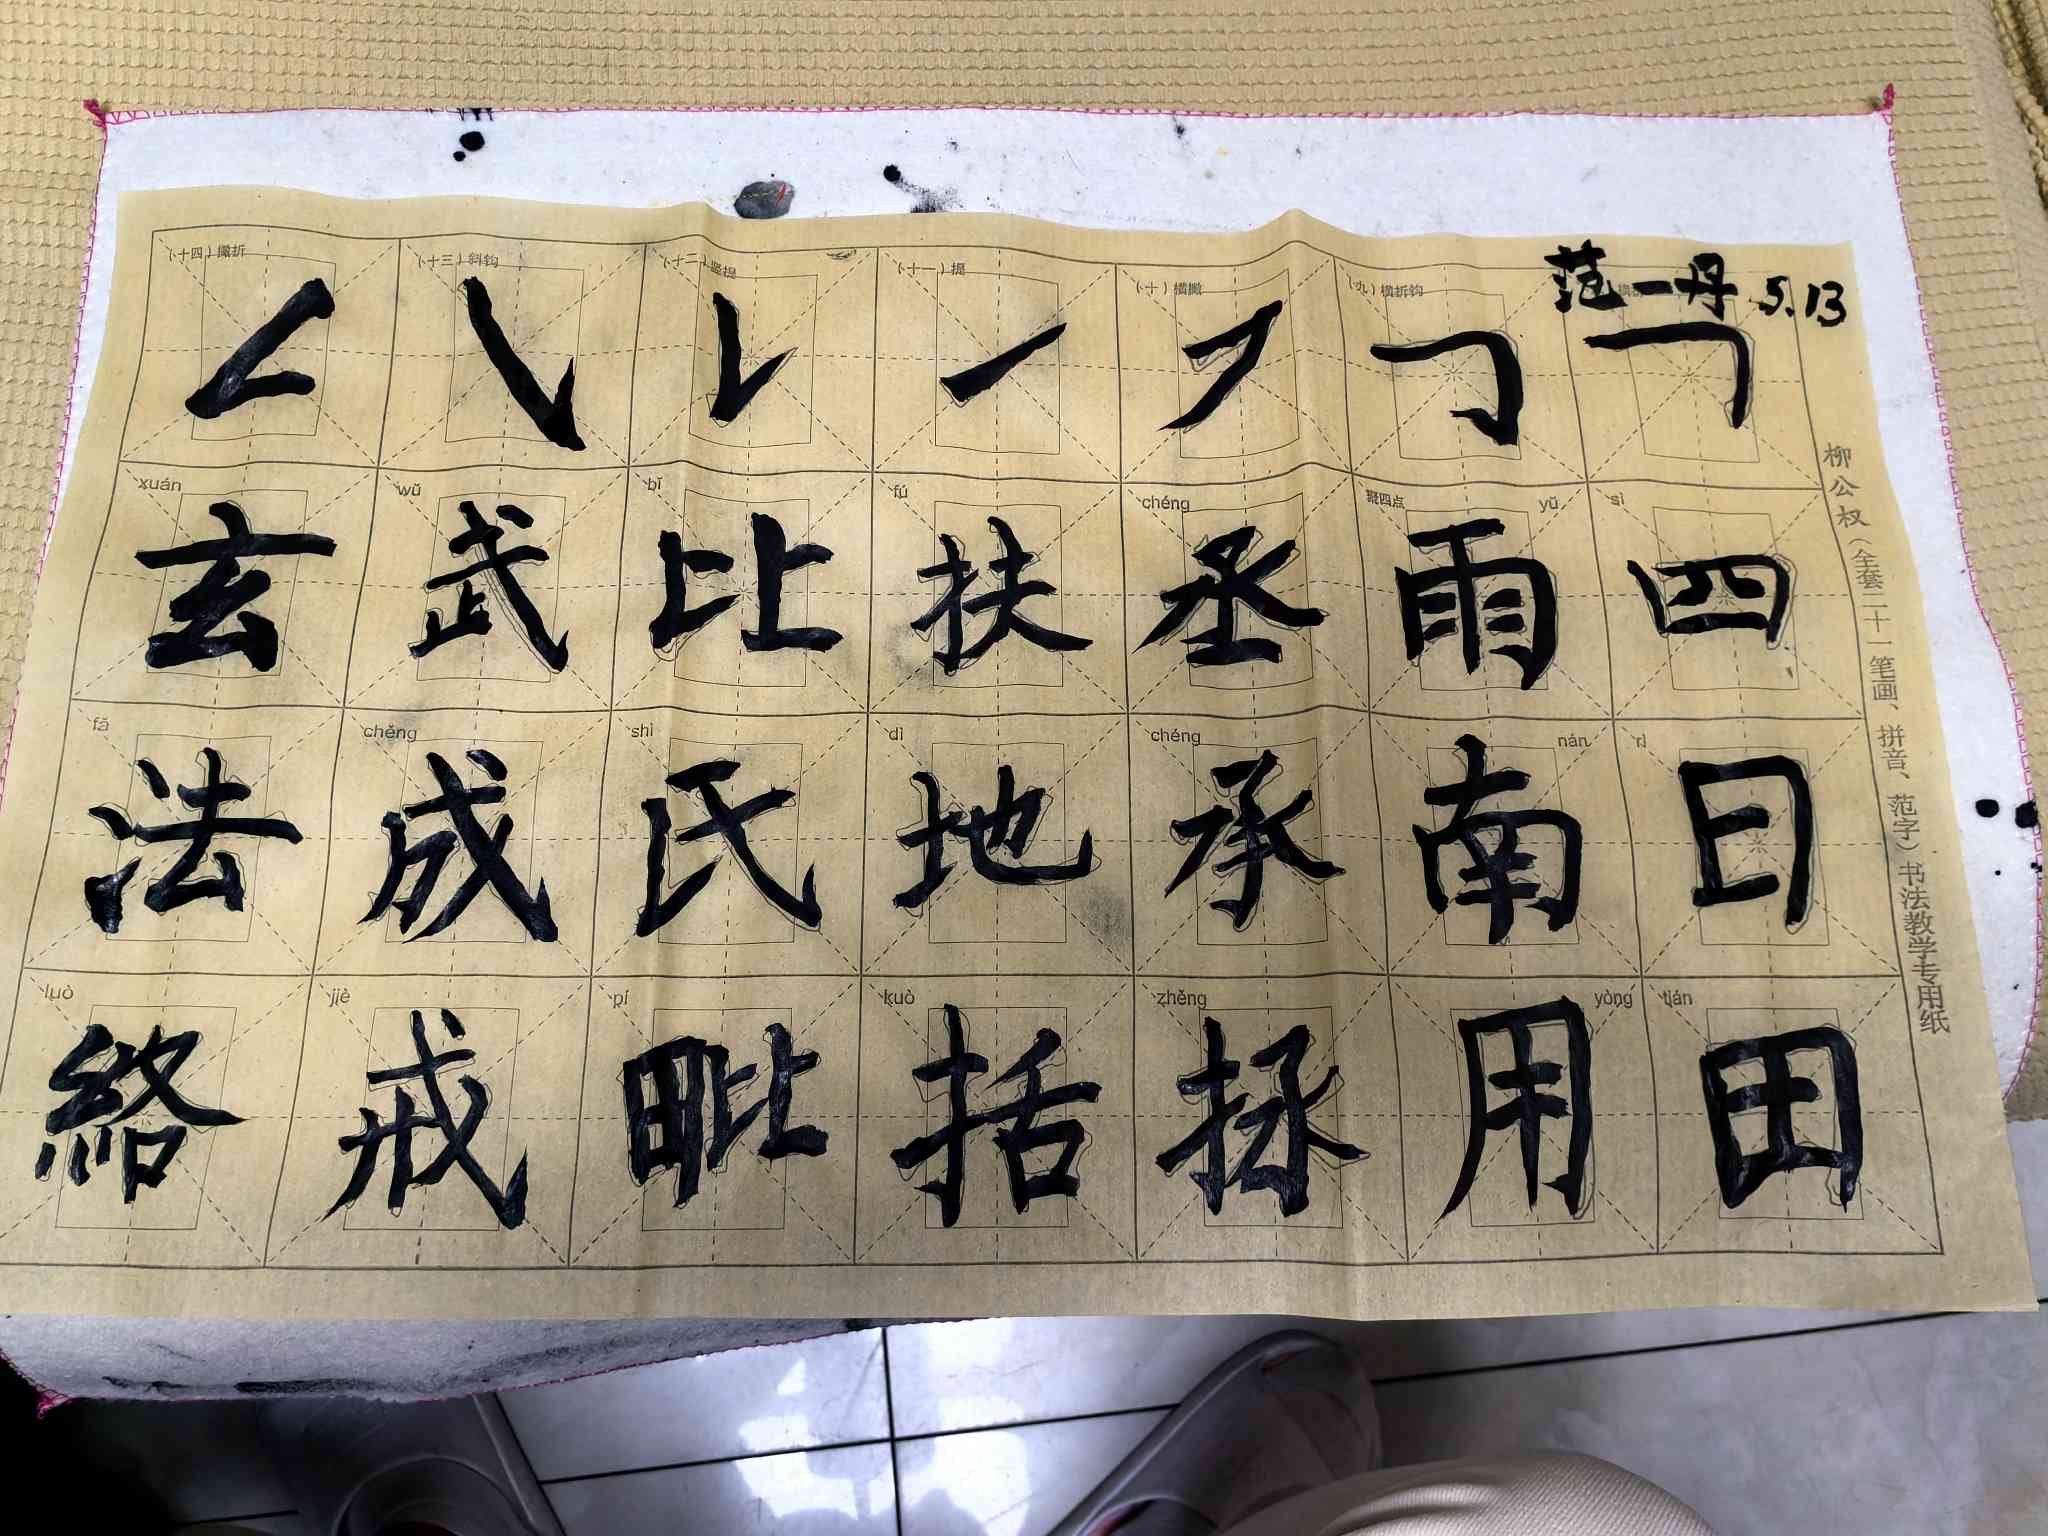 范一丹 5.13
（十四）撇折 （十三）斜钩 （十二）竖提 （十一）提 （十）横撇 （九）横折钩
xuán wǔ bǐ fú chéng 聚四点 yǔ sì
玄 武 比 扶 丞 雨 四
fǎ chéng shì dì chéng nán rì
法 成 氏 地 承 南 日
luò jiè pí kuò zhěng yòng tián
絡 戒 毗 括 拯 用 田
柳公权（全套二十一笔画、拼音、范字）书法教学专用纸